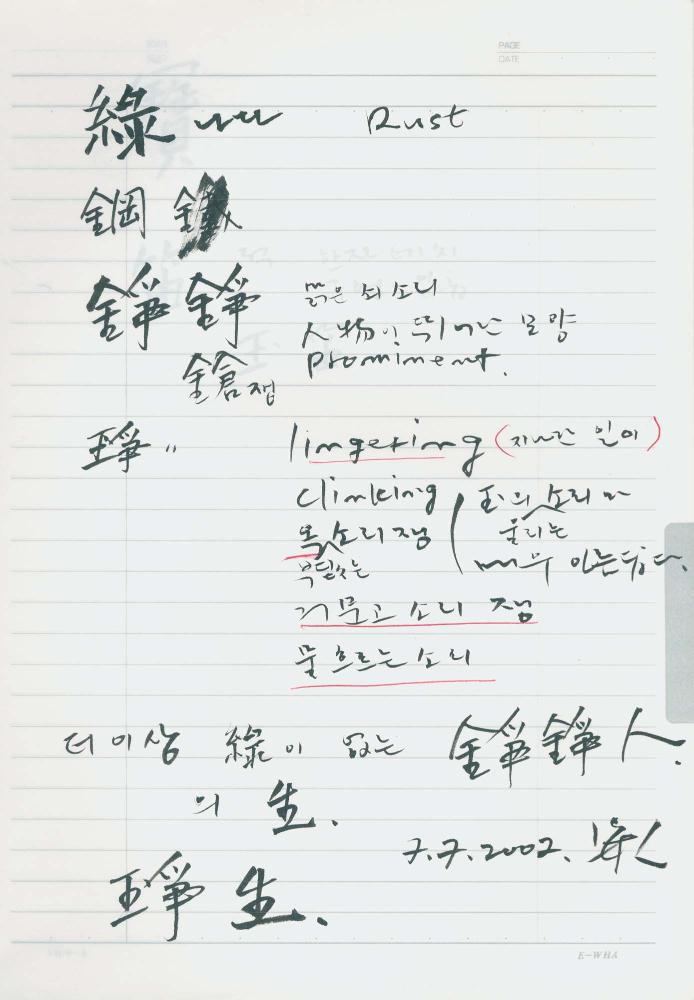 PAGE
DATE
綠 Rust
鋼 鐵
錚 錚 맑은 쇠 소리
人物이 뛰어난 모양
鎗 쟁 prominent.
琤 〃 lingering (지나간 일이)
clinking 玉의 소리나
옥 소리 쟁 울리는
부딪치는 여운 있는 듯하다.
거문고 소리 쟁
물 흐르는 소리
더 이상 綠이 없는 錚 錚 人.
의 生.
7.7.2002.
琤 生.
E-WHA